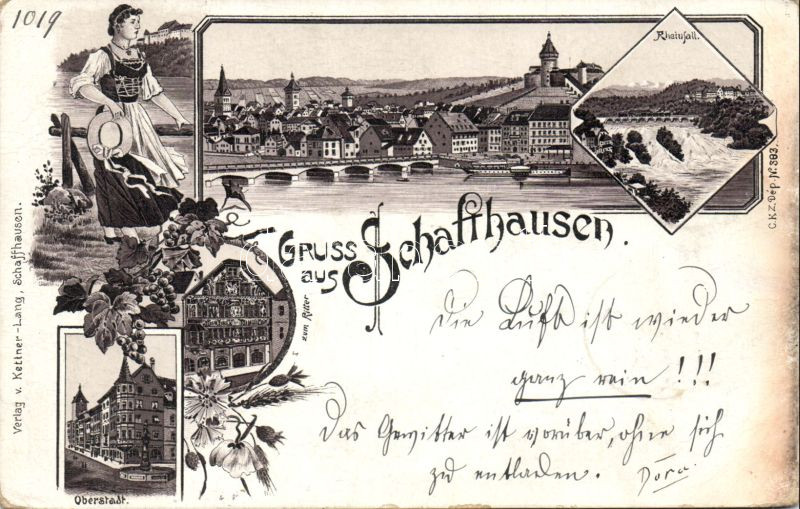 1019
Rheinfall.
C.K.Z. Dép. Nº 383.
Verlag v. Kettner-Lang, Schaffhausen.
GRUSS
aus Schaffhausen.
zum Ritter
Oberstadt.
Die Luft ist wieder
ganz rein!!!
Das Gewitter ist vorüber, ohne sich
zu entladen. Dora.